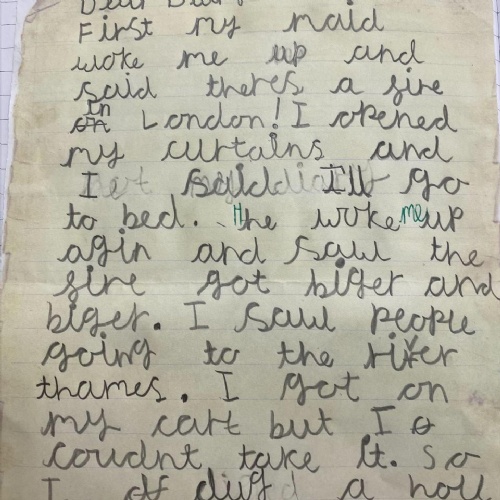 Dear Diary
First my maid
woke me up and
said theres a fire
In London! I opened
my curtains and
I said I'll go
to bed. He woke me up
agin and I saw the
fire got biger and
biger. I saw people
going to the river
thames. I got on
my cart but I
coudnt take it. So
I a